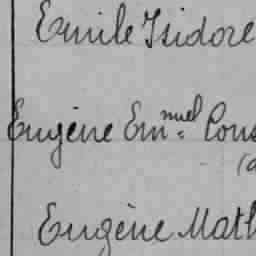 Emile Isidore
Eugène Em.nuel Cons
(a
Eugène Math